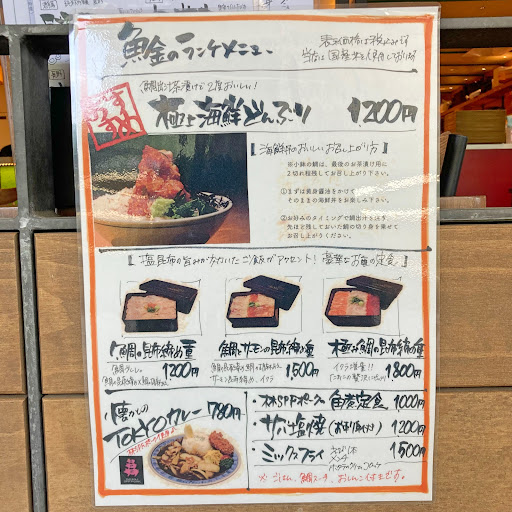 魚金のランチメニュー
表示価格は税込みです
当店は国産米を使用しております
鯛出汁茶漬けで2度おいしい!
おすすめ
極上海鮮どんぶり 1,200円
【海鮮丼のおいしいお召し上がり方】
※小鉢の鯛は、最後のお茶漬け用に
2切れ程残してお召し上がり下さい。
①まずは黄身醤油をかけて
そのままの海鮮丼をお楽しみ下さい。
②お好みのタイミングで鯛出汁を注ぎ、
先ほど残しておいた鯛の切り身を乗せて
お召し上がりください。
【塩昆布の旨みが効いたご飯がアクセント!豪華なお重の定食】
鯛の昆布締め重
1200円
鯛とサーモンの昆布締め重
1,500円
極み鯛の昆布締め重
イクラ増量!!
1,800円
懐かしの
TOKYOカレー 780円
林SPFポークの角煮定食 1000円
・サバ塩焼 1200円
・ミックスフライ 1500円
メンチ
※ごはん、鯛スープ、おしんこ付きです。